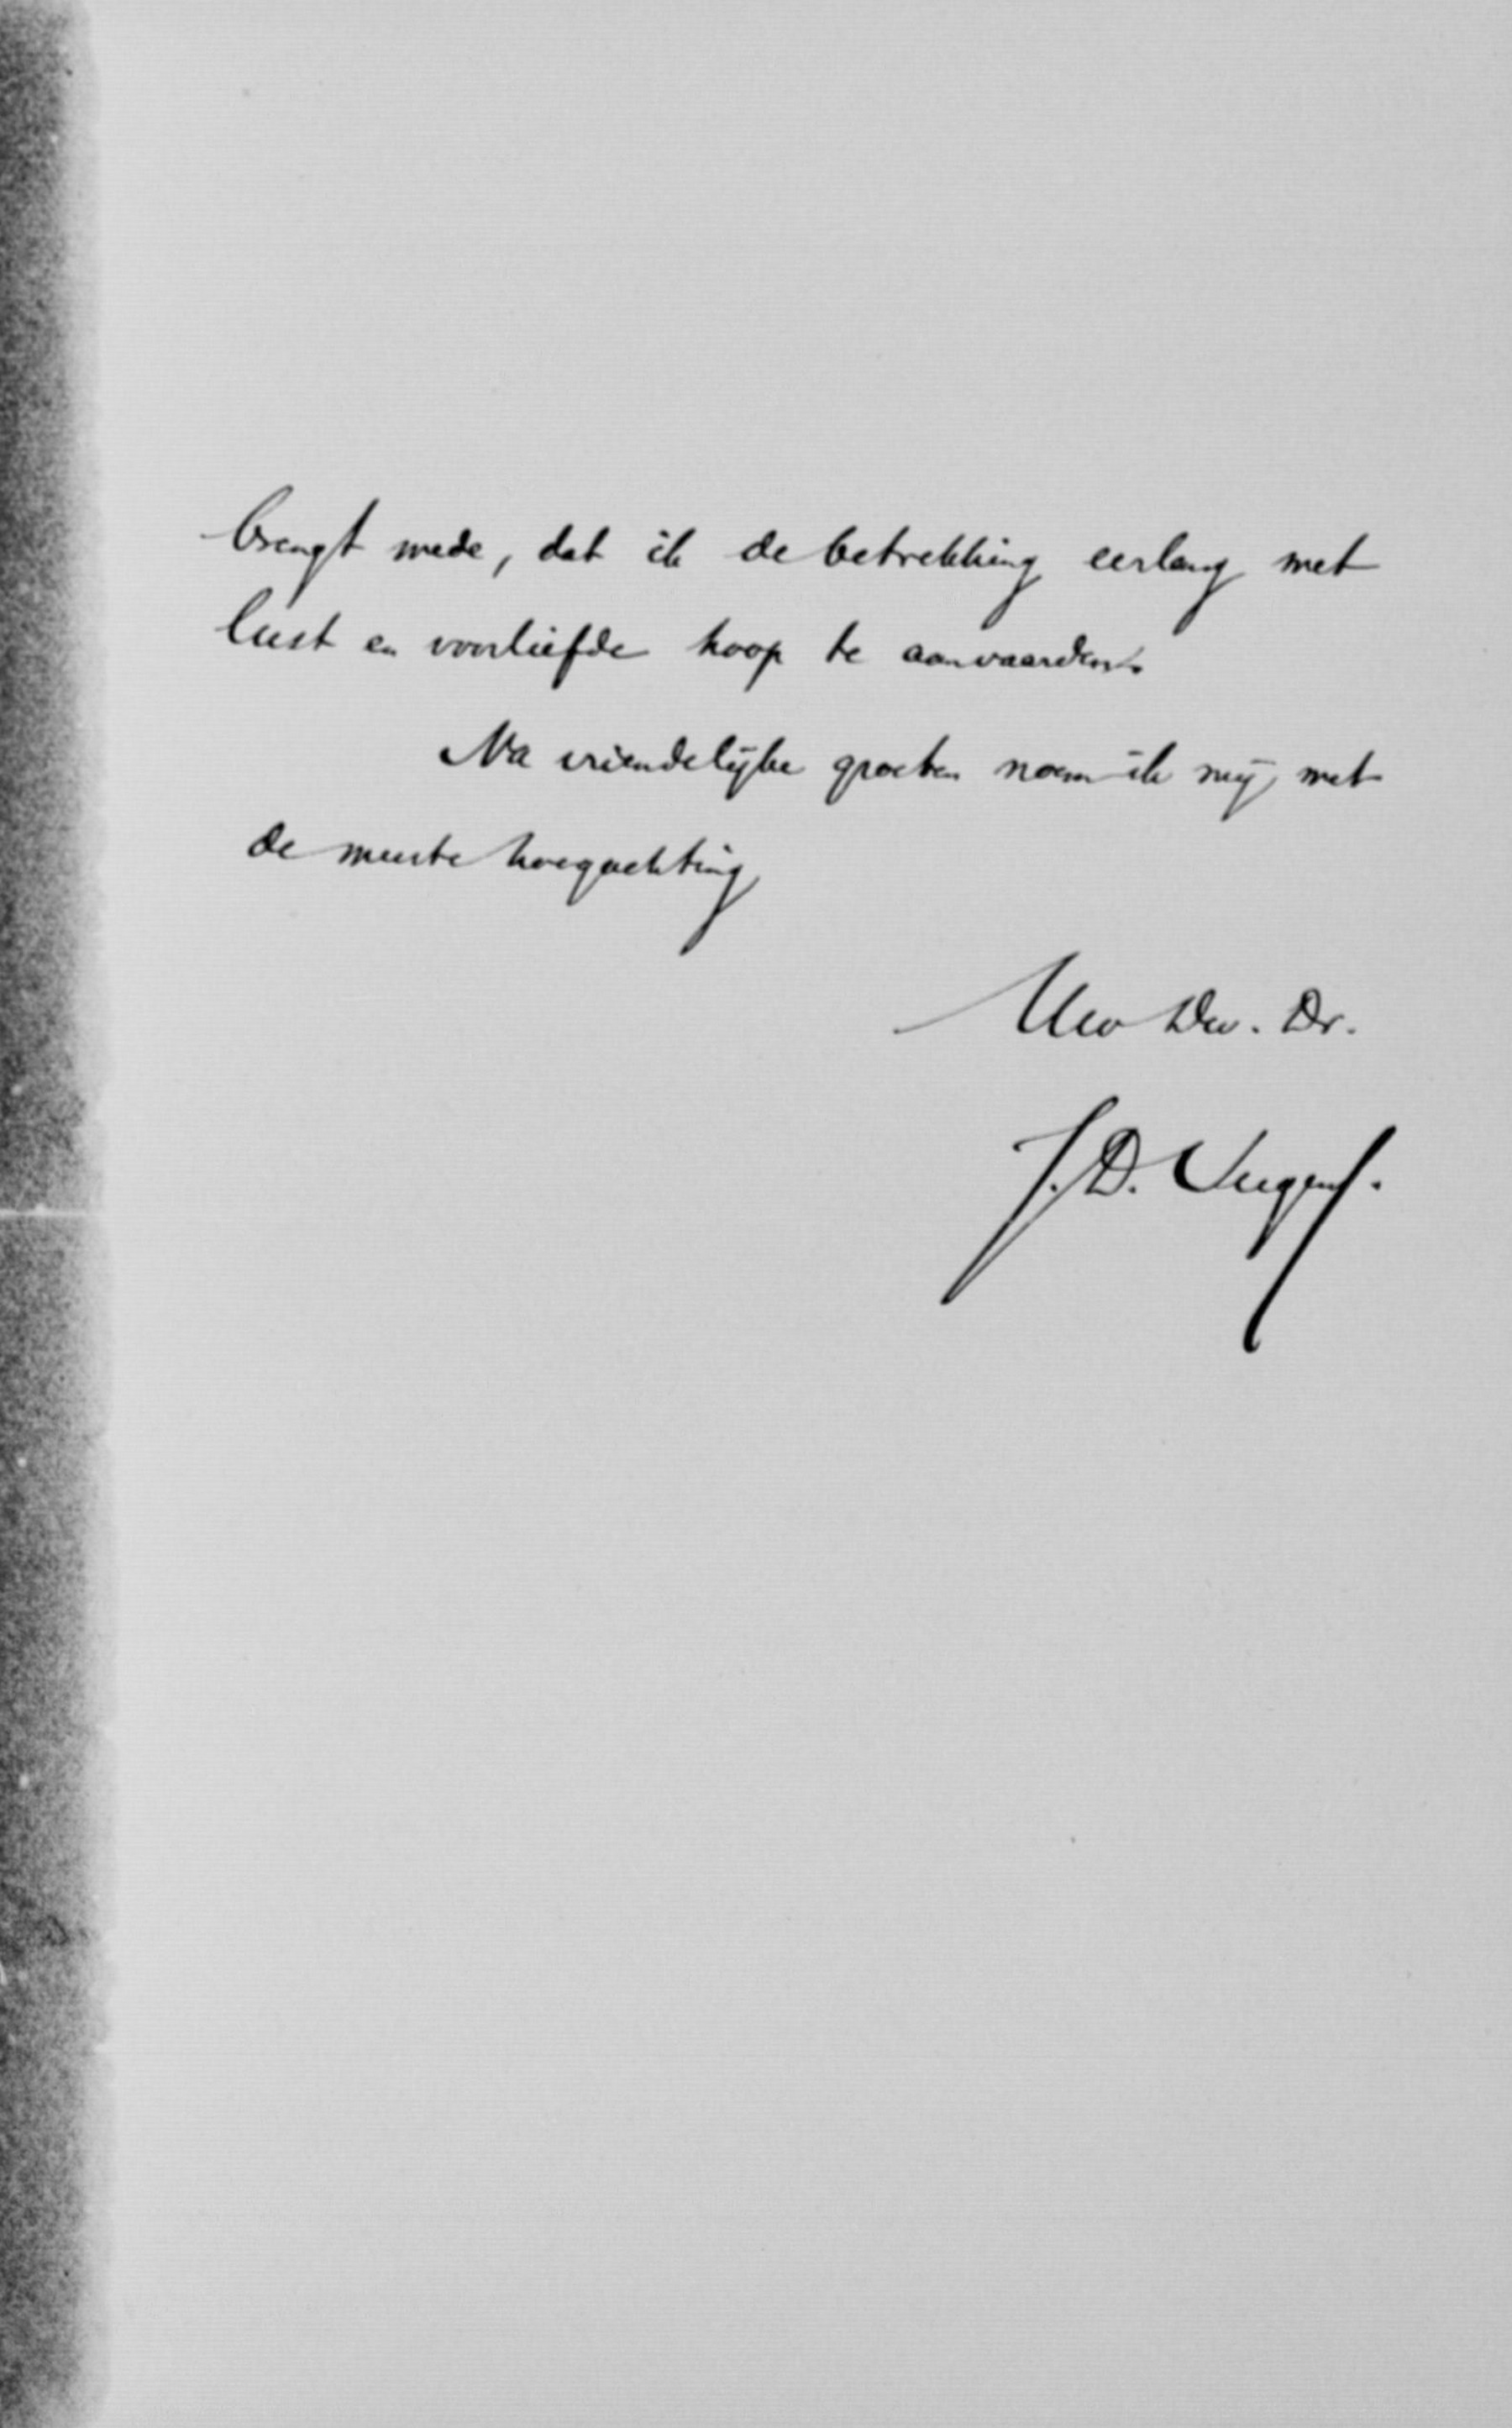 brengt mede, dat ik de betrekking eerlang met
lust en voorliefde hoop te aanvaarden.
Na vriendelijke groeten noem ik mij, met
de meeste hoogachting,
Uw Dw. Dr.
J. D.